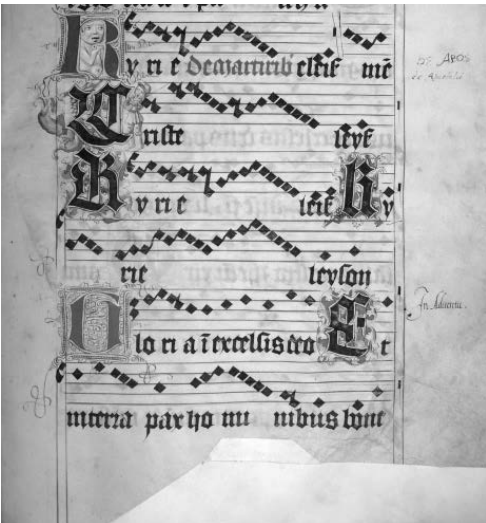 Ky ri e De martirib eleis
DE APOS
Criste leys
Ky ri e leis Ky
rie leyson
In Adventu.
Glo ri a ī excelsis deo Et
in terra pax ho mi nibus bone